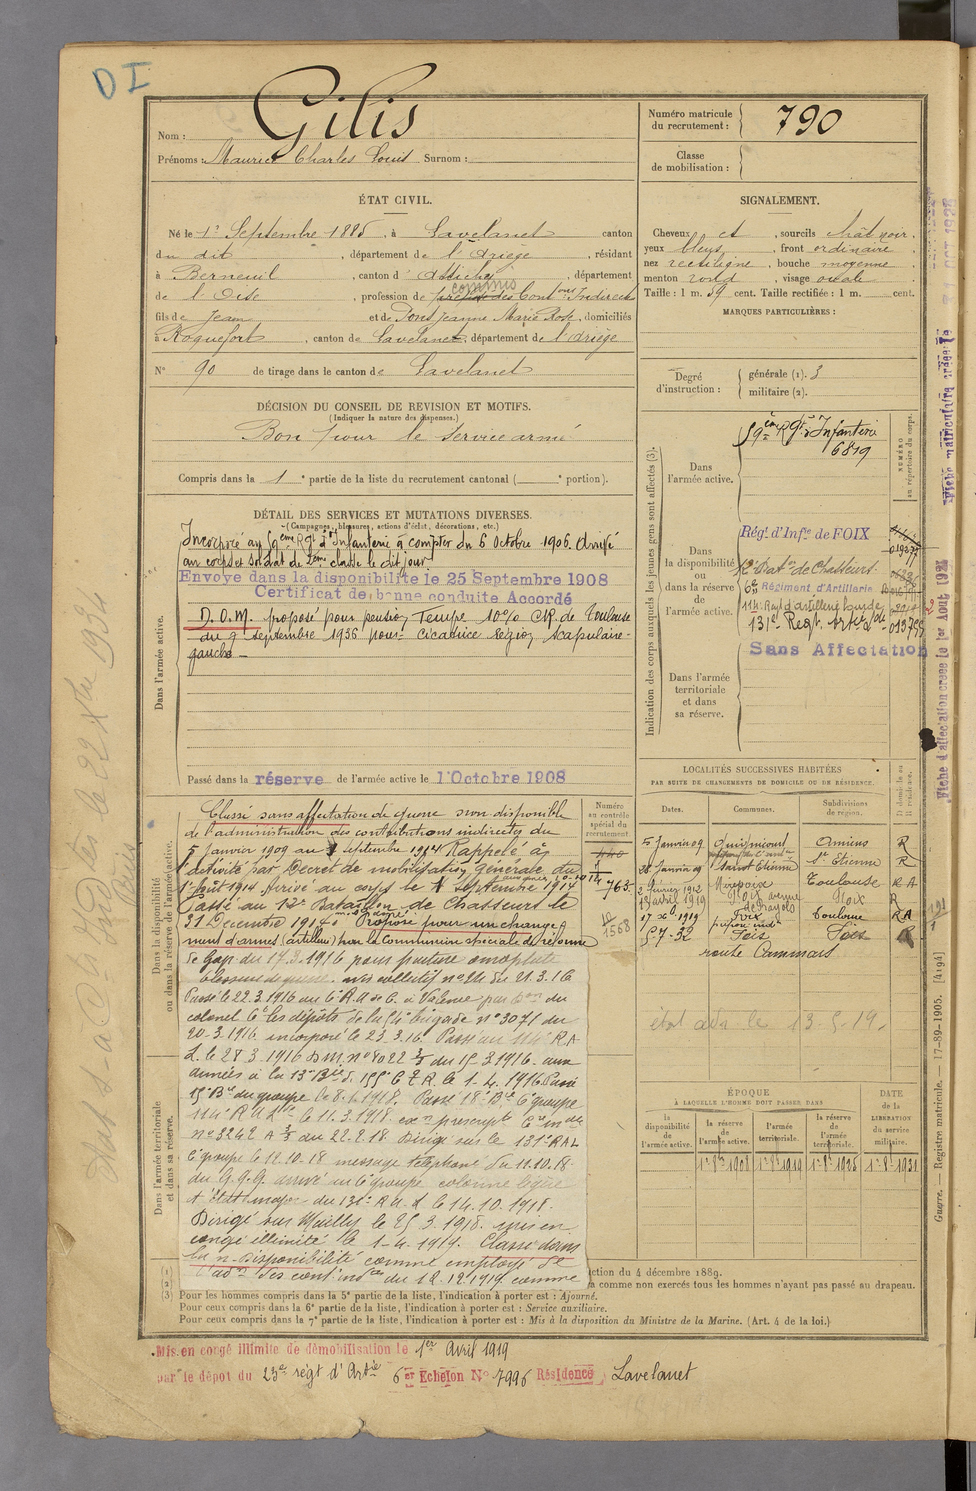 D I
Nom : Gilis
Prénoms : Maurice Charles Louis Surnom :
Numéro matricule du recrutement : 790
Classe de mobilisation :
ÉTAT CIVIL.
Né le 1er Septembre 1885, à Lavelanet canton
du dit, département de l'Ariège, résidant
à Berneuil, canton d'Attichy, département
de l'Oise, profession de commis des Contons Indirectes
fils de Jean et de Pons Jeanne Marie Rose, domiciliés
à Roquefort, canton de Lavelanet, département de l'Ariège
N° 90 de tirage dans le canton de Lavelanet
SIGNALEMENT.
Cheveux et, sourcils chât noir,
yeux bleus, front ordinaire
nez rectiligne, bouche moyenne
menton rond, visage ovale
Taille : 1 m. 59 cent. Taille rectifiée : 1 m. cent.
MARQUES PARTICULIÈRES :
Degré d'instruction : générale (1). 3
militaire (2).
DÉCISION DU CONSEIL DE REVISION ET MOTIFS.
(Indiquer la nature des dispenses.)
Bon pour le service armé
Compris dans la 1e partie de la liste du recrutement cantonal ( e portion).
DÉTAIL DES SERVICES ET MUTATIONS DIVERSES.
(Campagnes, blessures, actions d'éclat, décorations, etc.)
Dans l'armée active.
Incorporé au 59ème Rgt d'Infanterie à compter du 6 Octobre 1906. Arrivé
au corps et soldat de 2ème classe le dit jour.
Envoyé dans la disponibilité le 25 Septembre 1908
Certificat de bonne conduite Accordé
D.O.M. proposé pour pension Temp 10% CR. de Toulouse
du 9 septembre 1936 pour cicatrice région scapulaire
gauche
Passé dans la réserve de l'armée active le 1 Octobre 1908
Indication des corps auxquels les jeunes gens sont affectés (3).
NUMÉRO au répertoire du corps.
Dans l'armée active.
59ème Rgt d'Infanterie
6819
Dans la disponibilité ou dans la réserve de l'armée active.
Régt d'Infie de FOIX
12e Baton de Chasseurs
6e Régiment d'Artillerie
114e Regt d'artillerie lourde
131e Regt
013755
Sans Affectation
Dans l'armée territoriale et dans sa réserve.
LOCALITÉS SUCCESSIVES HABITÉES
PAR SUITE DE CHANGEMENTS DE DOMICILE OU DE RÉSIDENCE.
Dates. Communes. Subdivisions de région. D domicile ou R résidence.
5 Janvier 09 Guignicourt Amiens R
28 Janvier 09 Saint Etienne St Etienne R
2 février 1912 Mirepoix Toulouse R A
13 avril 1919 Foix Foix R
17 Xbre 1919 Foix Toulouse RA
5-7-32 Foix Foix R
route
état adn le 13-5-19.
Dans la disponibilité ou dans la réserve de l'armée active.
Numéro au contrôle spécial du recrutement.
763
1568
Classé sans affectation de guerre non disponible
de l'administration des contributions indirectes du
5 Janvier 1909 au 1 septembre 1914 Rappelé à
l'activité par Décret de mobilisation générale du
1er Août 1914 Arrivé au corps le 1 Septembre 1914
Passé au 12e Bataillon de Chasseurs le
31 Décembre 1914. Proposé pour un change-
ment d'armes (artillerie) par la Commission spéciale de réforme
de Gap du 17.3.1916 pour fracture omoplate
blessure de guerre. avis collectif n° 24 du 21.3.16
Passé le 22.3.1916 au 6e R.A de C. à Valence par Don du
colonel Ct les dépôts de la 54e brigade n° 3071 du
20-3.1916 incorporé le 23.3.16. Passé au 114e RA
L. le 28.3.1916 D.M. n° 8022 3/3 du 15.3.1916. aux
armées à la 13e Bie d. 155 C. T. R. le 1-4.1916 Passé
15e Bie du groupe le 8.1.1918. Passé 18e Bie 6e groupe
114e R A L le 11.3.1918.
n° 3242 A 3/3 du 22.2.18 Dirigé sur le 131e RAL
6e groupe le 12-10-18 message téléphoné du 11.10.18.
du G.Q.G. arrivé au 6e groupe colonne légère
et état major du 131e R A L le 14.10.1918.
Dirigé sur Mailly le 25.3.1918. mis en
congé illimité le 1-4.1919. Classé dans
la n-Disponibilité comme employé de
l'adon des cont indes du 12.12.1919 comme
Dans l'armée territoriale et dans sa réserve.
ÉPOQUE
À LAQUELLE L'HOMME DOIT PASSER DANS
la disponibilité de l'armée active. la réserve de l'armée active. l'armée territoriale. la réserve de l'armée territoriale.
DATE de la LIBÉRATION du service militaire.
1er 8bre 1908 1er 8bre 1919 1er 8bre 1925 1er 8bre 1931
ction du 4 décembre 1889.
a comme non exercés tous les hommes n'ayant pas passé au drapeau.
(1)
(2)
(3) Pour les hommes compris dans la 5e partie de la liste, l'indication à porter est : Ajourné.
Pour ceux compris dans la 6e partie de la liste, l'indication à porter est : Service auxiliaire.
Pour ceux compris dans la 7e partie de la liste, l'indication à porter est : Mis à la disposition du Ministre de la Marine. (Art. 4 de la loi.)
Mis en congé illimité de démobilisation le 1er Avril 1919
par le dépôt du 23e régt d'Artie 6er Echelon N° 7996 Résidence Lavelanet
Guerre. — Registre matricule. — 17-89-1905. [4194]
Fiche d'affectation créée le 1er Août 1921
Fiche matriculaire créée le